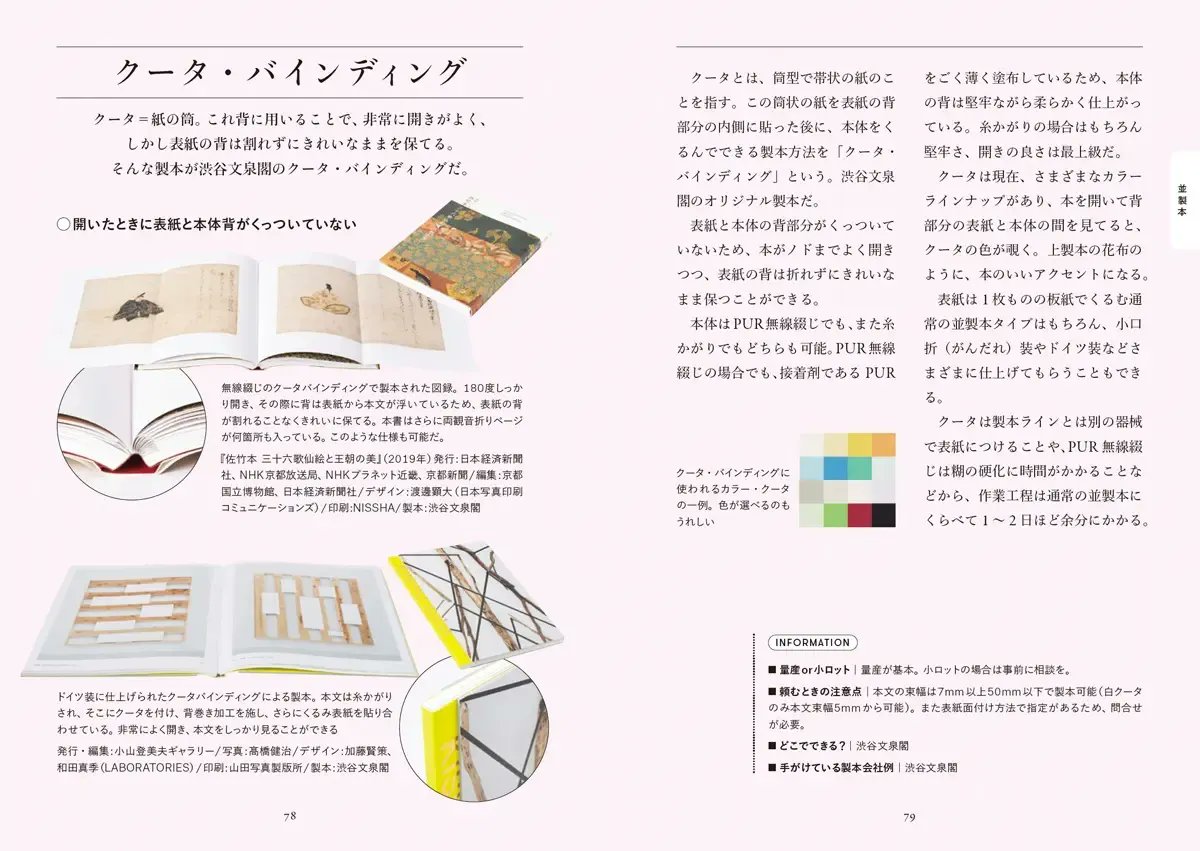 クータ・バインディング
クータ＝紙の筒。これ背に用いることで、非常に開きがよく、
しかし表紙の背は割れずにきれいなままを保てる。
そんな製本が渋谷文泉閣のクータ・バインディングだ。
○開いたときに表紙と本体背がくっついていない
無線綴じのクータバインディングで製本された図録。180度しっか
り開き、その際に背は表紙から本文が浮いているため、表紙の背
が割れることなくきれいに保てる。本書はさらに両観音折りページ
が何箇所も入っている。このような仕様も可能だ。
『佐竹本 三十六歌仙絵と王朝の美』（2019年）発行：日本経済新聞
社、NHK京都放送局、NHKプラネット近畿、京都新聞／編集：京都
国立博物館、日本経済新聞社／デザイン：渡邊顕大（日本写真印刷
コミュニケーションズ）／印刷：NISSHA／製本：渋谷文泉閣
ドイツ装に仕上げられたクータバインディングによる製本。本文は糸かがり
され、そこにクータを付け、背巻き加工を施し、さらにくるみ表紙を貼り合
わせている。非常によく開き、本文をしっかり見ることができる
発行・編集：小山登美夫ギャラリー／写真：髙橋健治／デザイン：加藤賢策、
和田真季（LABORATORIES）／印刷：山田写真製版所／製本：渋谷文泉閣
78
クータとは、筒型で帯状の紙のこ
とを指す。この筒状の紙を表紙の背
部分の内側に貼った後に、本体をく
るんでできる製本方法を「クータ・
バインディング」という。渋谷文泉
閣のオリジナル製本だ。
表紙と本体の背部分がくっついて
いないため、本がノドまでよく開き
つつ、表紙の背は折れずにきれいな
まま保つことができる。
本体はPUR無線綴じでも、また糸
かがりでもどちらも可能。PUR無線
綴じの場合でも、接着剤であるPUR
をごく薄く塗布しているため、本体
の背は堅牢ながら柔らかく仕上がっ
ている。糸かがりの場合はもちろん
堅牢さ、開きの良さは最上級だ。
クータは現在、さまざまなカラー
ラインナップがあり、本を開いて背
部分の表紙と本体の間を見てると、
クータの色が覗く。上製本の花布の
ように、本のいいアクセントになる。
表紙は１枚ものの板紙でくるむ通
常の並製本タイプはもちろん、小口
折（がんだれ）装やドイツ装などさ
まざまに仕上げてもらうこともでき
る。
クータは製本ラインとは別の器械
で表紙につけることや、PUR無線綴
じは糊の硬化に時間がかかることな
どから、作業工程は通常の並製本に
くらべて１〜２日ほど余分にかかる。
クータ・バインディングに
使われるカラー・クータ
の一例。色が選べるのも
うれしい
並製本
INFORMATION
■量産or小ロット｜量産が基本。小ロットの場合は事前に相談を。
■頼むときの注意点｜本文の束幅は7mm以上50mm以下で製本可能（白クータ
のみ本文束幅5mmから可能）。また表紙面付け方法で指定があるため、問合せ
が必要。
■どこでできる？｜渋谷文泉閣
■手がけている製本会社例｜渋谷文泉閣
79